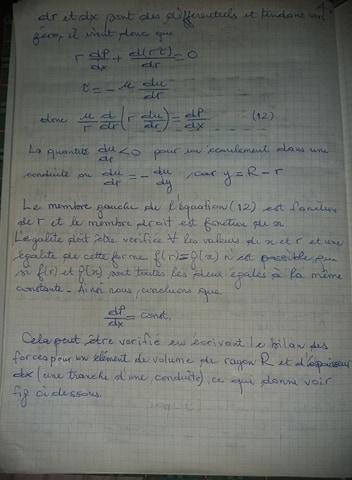 dr et dx sont des differentiels et tendent vers
zéro, il vient donc que
r dP/dx + d(rτ)/dr = 0
τ = - μ du/dr
donc μ/r d/dr (r du/dr) = dP/dx (12)
La quantité du/dr < 0 pour un écoulement dans une
conduite ou du/dr = - du/dy , car y = R - r
Le membre gauche de l'équation (12) est fonction
de r et le membre droit est fonction de x.
L'égalité doit être verifiée ∀ les valeurs du x et r et une
égalité de cette forme f(r) = g(x) n'est possible que
si f(r) et g(x) sont toutes les deux égales à la même
constante. Ainsi nous concluons que
dP/dx = const.
Cela peut être verifié en ecrivant le bilan des
forces pour un élément de volume de rayon R et d'épaisseur
dx (une tranche d'une conduite), ce que donne voir
fig ci dessous.